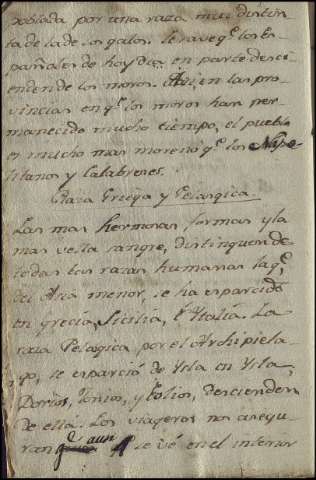 sobiada por una raza muy distin-
ta de la de los galos. Se ve q.e los Es-
pañoles de hoy dia, en parte desci-
enden de los moros. Asi en las pro-
vincias en q.e los moros han per-
manecido mucho tiempo, el pueblo
es mucho mas moreno q.e los Napo-
litanos y Calabreses.
Raza Griega y Pelasgica.
Las mas hermosas formas y la
mas vella sangre, distinguen de
todas las razas humanas la q.e
del Asia menor, se ha esparcido
en grecia, Sicilia, é Ytalia. La
raza Pelagica por el Archipiela-
go, se esparció de Ysla en Ysla,
Dorios, Jonios, y Eolios, descienden
de ella. Los viageros nos asegu-
ran q.e aun se vé en el interior